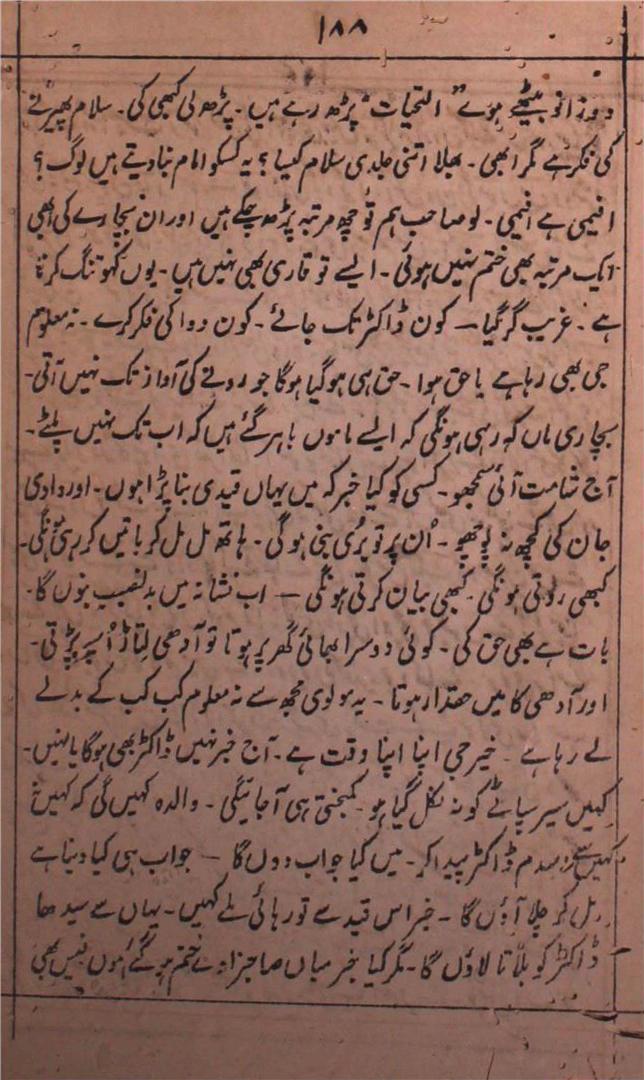 ۱۸۸
دوزانو بیٹھے ہوئے "التحیات" پڑھ رہے ہیں۔ پڑھ لی کبھی کی۔ سلام پھیرنے
کی فکر ہے مگر ابھی۔ بھلا اتنی جلدی سلام کیسا؟ یہ کسکو امام بنا دیتے ہیں لوگ؟
افیمی ہے افیمی۔ لو صاحب ہم تو چھ مرتبہ پڑھ چکے ہیں اور ان بیچارے کی ابھی
ایک مرتبہ بھی ختم نہیں ہوئی۔ ایسے تو قاری بھی نہیں ہیں۔ یوں کہو تنگ کرنا
ہے۔ غریب گر گیا — کون ڈاکٹر تک جائے۔ کون دوا کی فکر کرے۔ نہ معلوم
جی بھی رہا ہے یا حق ہوا۔ حق ہی ہو گیا ہوگا جو رونے کی آواز تک نہیں آتی۔
بیچاری ماں کہہ رہی ہونگی کہ ایسے ماموں باہر گئے ہیں کہ اب تک نہیں پلٹے۔
آج شامت آئی سمجھو۔ کسی کو کیا خبر کہ میں یہاں قیدی بنا پڑا ہوں۔ اور دادی
جان کی کچھ نہ پوچھو۔ اُن پر تو بُری بنی ہوگی۔ ہاتھ مل مل کر باتیں کر رہی ہونگی۔
کبھی روتی ہونگی۔ کبھی بیان کرتی ہونگی — اب نشانہ میں بدنصیب بنوں گا۔
بات ہے بھی حق کی۔ کوئی دوسرا بھائی گھر پر ہوتا تو آدھی لتاڑ اُسپر پڑتی۔
اور آدھی کا میں حقدار ہوتا۔ یہ مولوی مجھ سے نہ معلوم کب کب کے بدلے
لے رہا ہے۔ خیر جی اپنا اپنا وقت ہے۔ آج خبر نہیں ڈاکٹر بھی ہوگا یا نہیں۔
کہیں سیر سپاٹے کو نہ نکل گیا ہو۔ کمبختی ہی آجائیگی۔ والدہ کہیں گی کہ کہیں نہ
کہیں سے ڈاکٹر پیدا کر۔ میں کیا جواب دوں گا — جواب ہی کیا دینا ہے
مل کر چلا آؤں گا۔ خیر اس قید سے تو رہائی ملے کہیں۔ یہاں سے سیدھا
ڈاکٹر کو بلاتا لاؤں گا۔ مگر کیا خبر میاں صاحبزادے ختم ہو گئے ہوں نہیں بھی